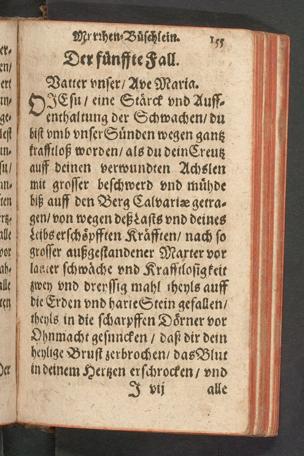 Myrrhen-Büschlein. 155
Der fünffte Fall.
Vatter vnser/ Ave Maria.
O JEsu/ eine Stärck vnd Auff-
enthaltung der Schwachen/ du
bist vmb vnser Sünden wegen gantz
krafftloß worden/ als du dein Creutz
auff deinen verwundten Achslen
mit grosser beschwerd vnd mühde
biß auff den Berg Calvariæ getra-
gen/ von wegen deß Lasts vnd deines
Leibs erschöpfften Kräfften/ nach so
grosser außgestandener Marter vor
lauter schwäche vnd Krafftlosigkeit
zwey vnd dreyssig mahl theyls auff
die Erden vnd harte Stein gefallen/
theyls in die scharpffen Dörner vor
Ohnmacht gesuncken/ daß dir dein
heylige Brust zerbrochen/ das Blut
in deinem Hertzen erschrocken/ vnd
J vij alle